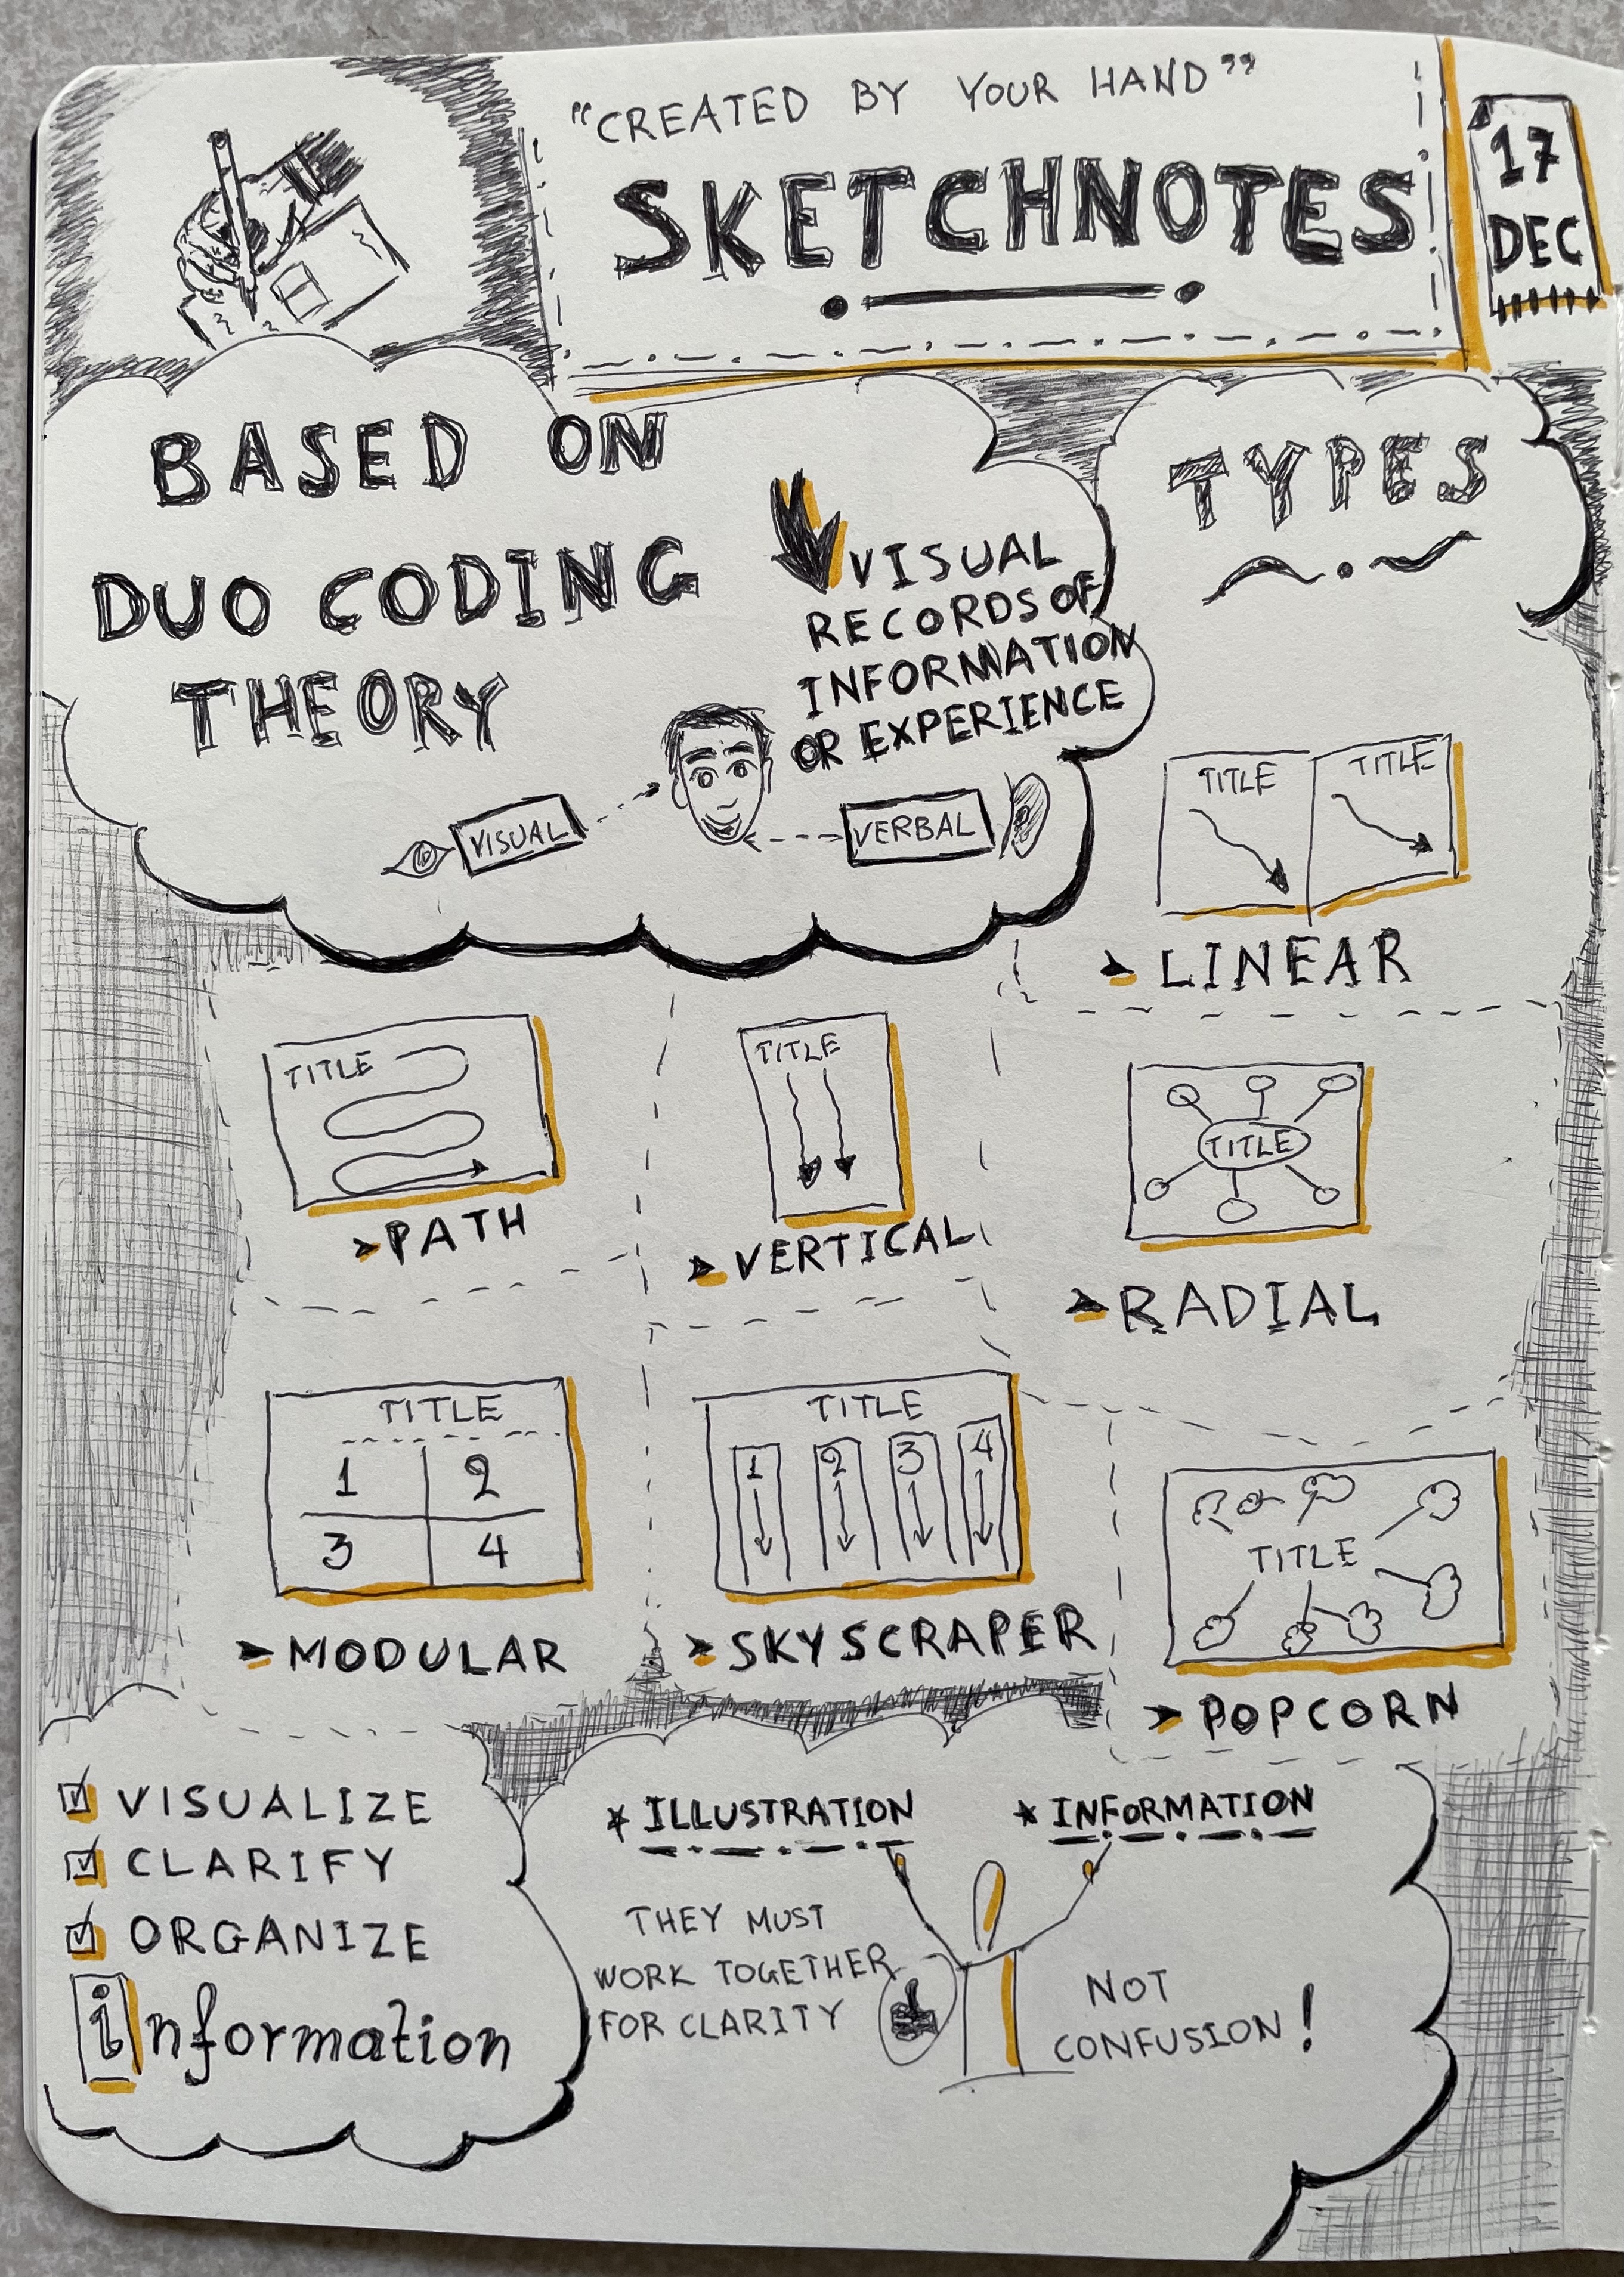 "CREATED BY YOUR HAND"
SKETCHNOTES
17
DEC
BASED ON
DUO CODING
THEORY
VISUAL
RECORDS OF
INFORMATION
OR EXPERIENCE
VISUAL
VERBAL
TYPES
TITLE
TITLE
LINEAR
TITLE
PATH
TITLE
VERTICAL
TITLE
RADIAL
TITLE
1
2
3
4
MODULAR
TITLE
1
2
3
4
SKYSCRAPER
TITLE
POPCORN
VISUALIZE
CLARIFY
ORGANIZE
information
* ILLUSTRATION
* INFORMATION
THEY MUST
WORK TOGETHER
FOR CLARITY
NOT
CONFUSION!